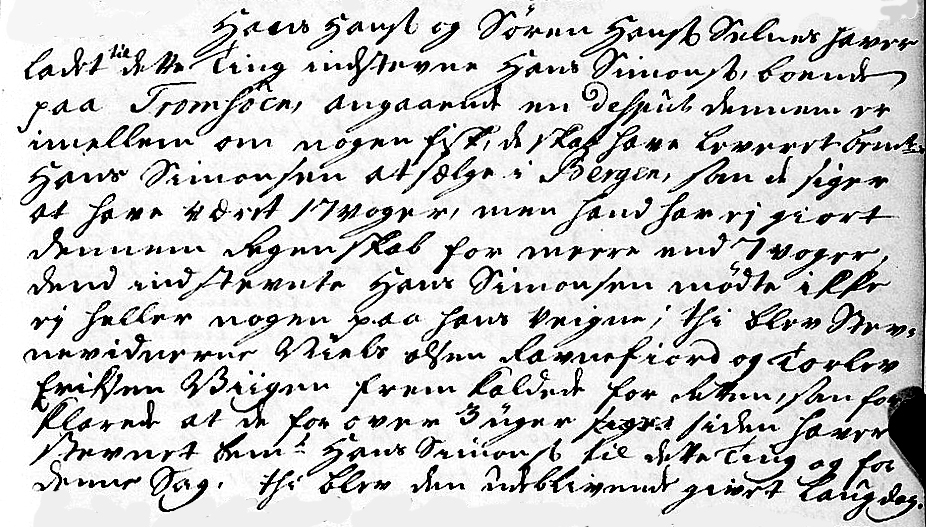 Hans Hanss og Sören Hanss Selnes haver
ladet til dette Ting indstevne Hans Simonss, boende
paa Tromsöen, angaaende en Desput dennem er
imellem om nogen fisk, de skal have leveret bemte
Hans Simonsen at sælge i Bergen, som de siger
at have været 17 voger, men hand har ej giort
dennem Regenskab for meere end 7 voger,
dend indstevnte Hans Simonsen mödte ikke
ej heller nogen paa hans veigne; thi blev Stev-
nevidnerne Niels olsen Ravnefiord og Torlev
Erikssen Viigen frem kaldede for Retten, som for
klarede at de for over 3 uger siden haver
Stevnet bemte Hans Simonss til dette Ting og for
denne Sag. thi blev den udeblivende givet Laugdag.